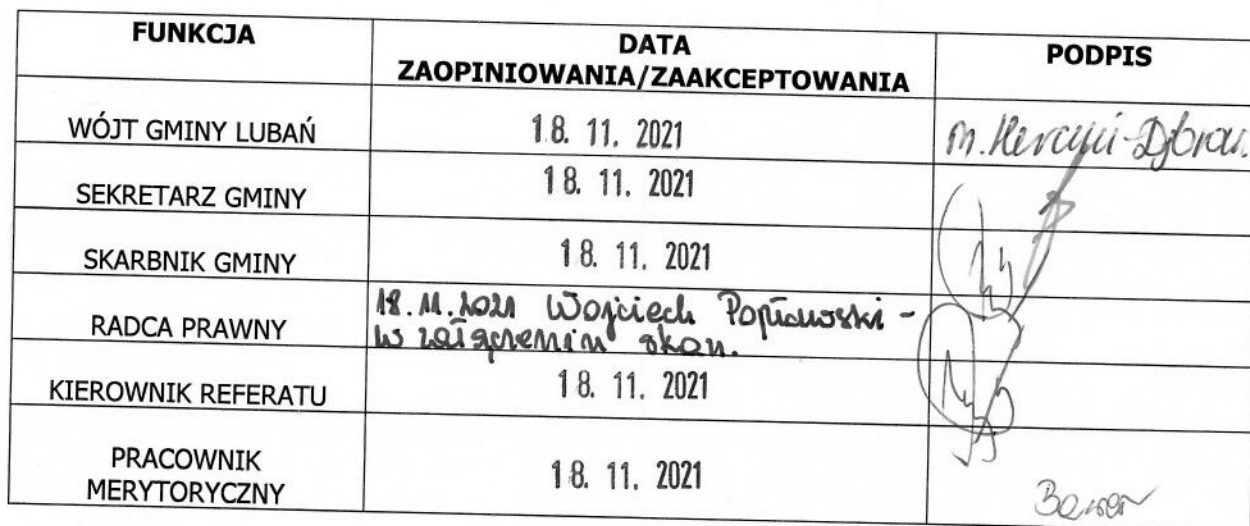 FUNKCJA
DATA
ZAOPINIOWANIA/ZAAKCEPTOWANIA
PODPIS
WÓJT GMINY LUBAŃ
18. 11. 2021
SEKRETARZ GMINY
18. 11. 2021
SKARBNIK GMINY
18. 11. 2021
RADCA PRAWNY
18.11.2021 Wojciech Popławski -
w załączeniu skan.
KIEROWNIK REFERATU
18. 11. 2021
PRACOWNIK
MERYTORYCZNY
18. 11. 2021